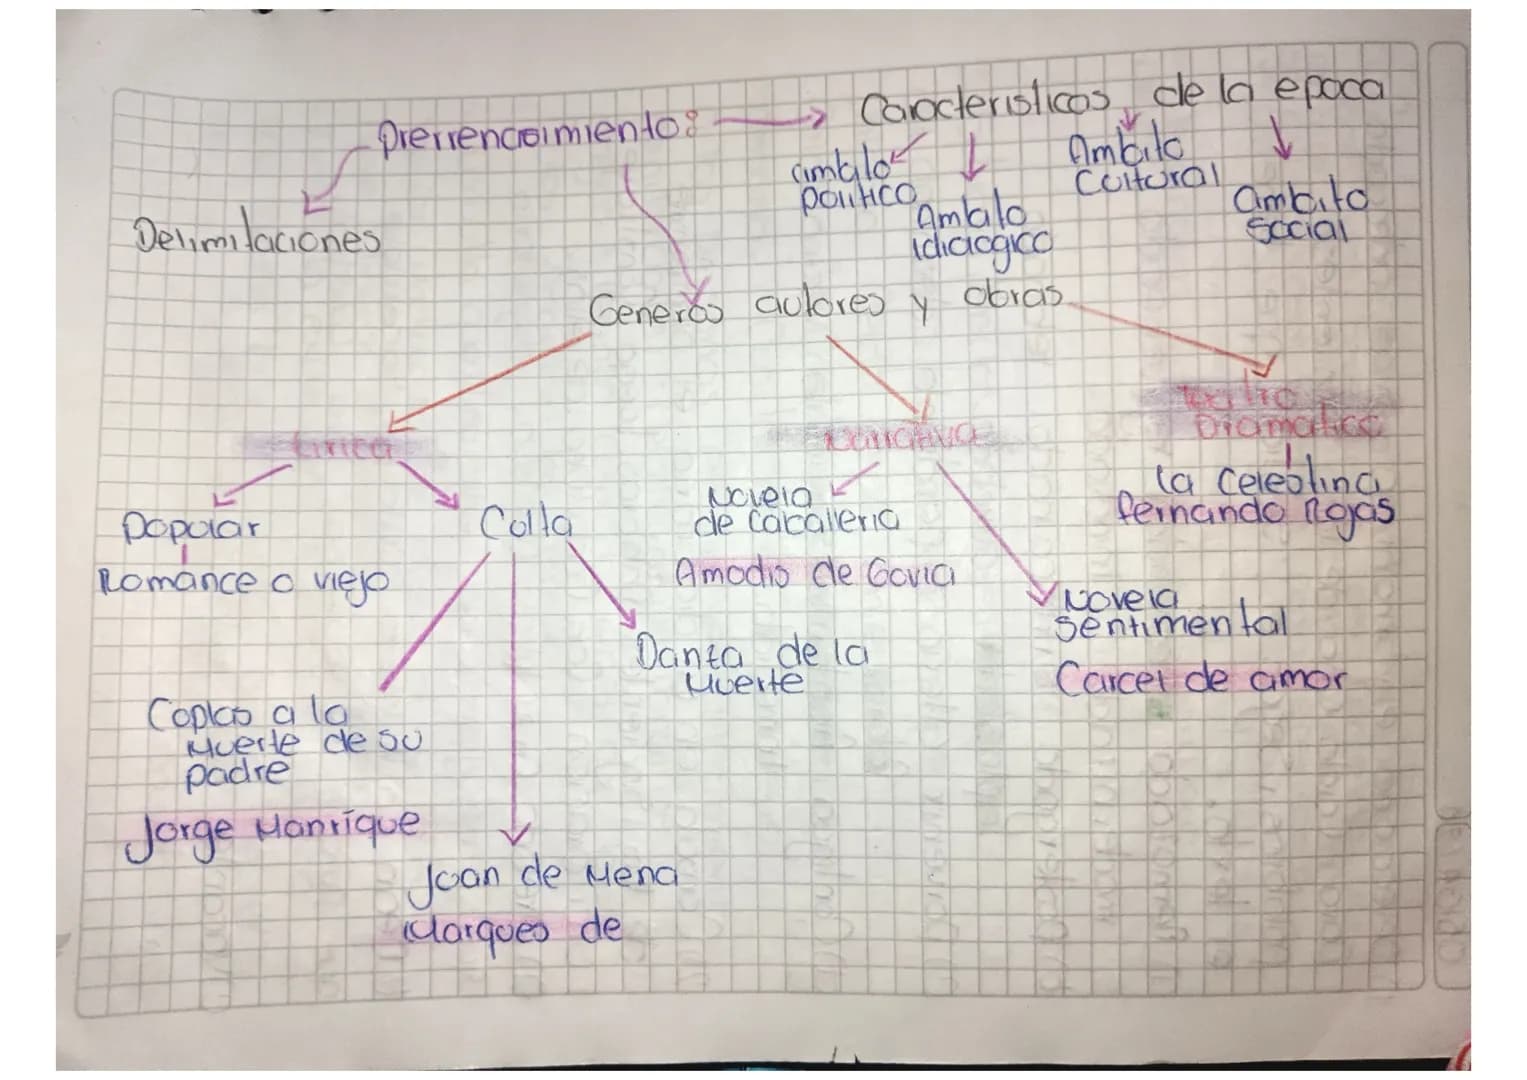 Prerrenacimiento: → Caracteristicas de la epoca
Ambito
politico
Ambito
idiologico
Ambito
Cultural
Ambito
Social
Delimitaciones
Generos autores y obras
Lirica
Narrativa
Teatro
Dramatico
Popular
Romance o viejo
Culta
Novela
de caballeria
Amadis de Gavia
La Celestina
fernando Rojas
Novela
sentimental
Carcel de amor
Danza de la
Muerte
Coplas a la
Muerte de su
padre
Jorge Manrique
Juan de Mena
Marques de